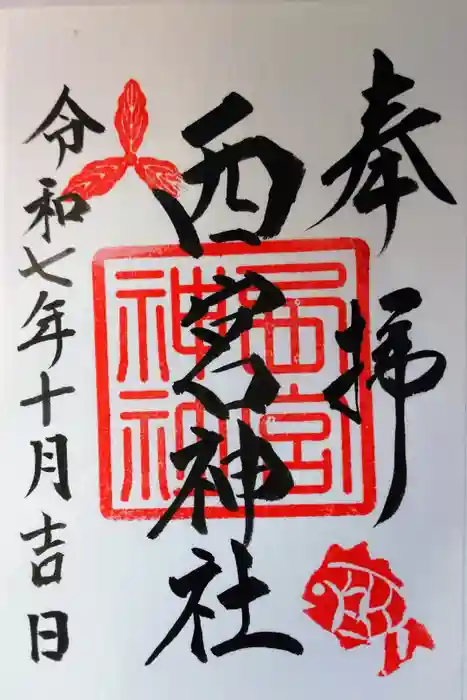 奉拝
西宮神社
令和七年十月吉日
西宮神社